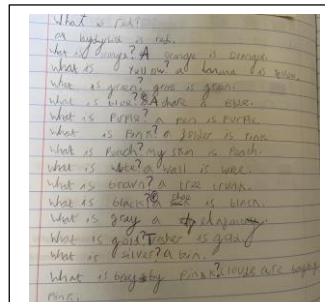 What is red?
a is red.
What is orange? A orange is orange.
What is yellow? a banana is
What is green, gras is green.
What is blue? A shoe a blue.
What is Purple? a pen is purple
What is Pink? a folder is Pink
What is Peach? my skin is Peach.
What is a wall is
What is brown? a tree trunk.
What is black? a shoe is black.
What is gray a
What is gold? is gold
What is silver? a bin.
What is by Pink? clouds are
Pink.